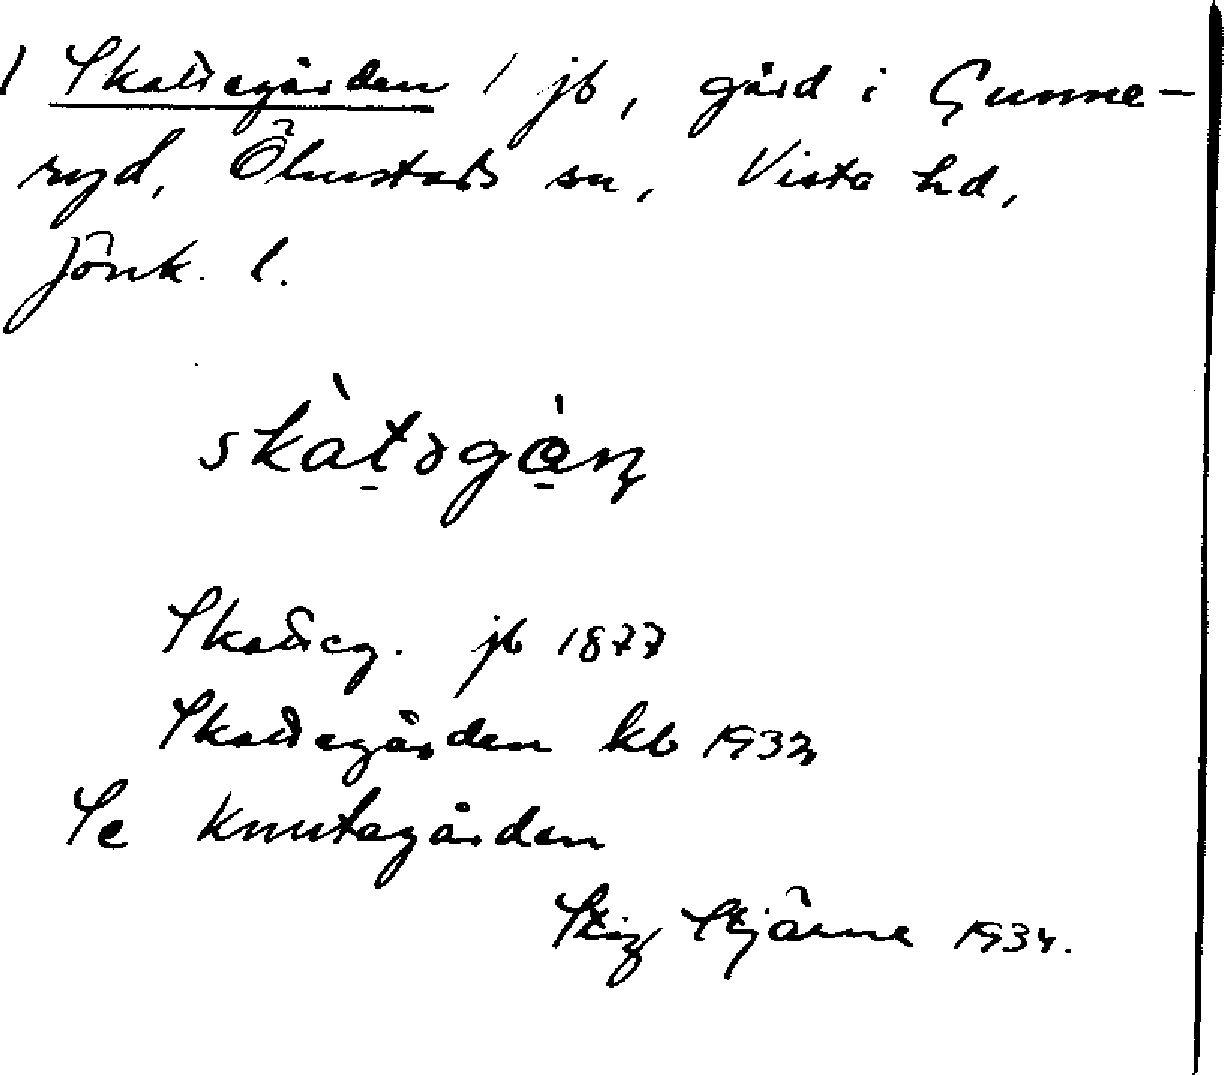 / Skattegården / jb, gård i Gunne-
ryd, Ölmstads sn, Vista hd,
Jönk. l.
skàt̠əgɑ̠̀ɳ
Skatteg. jb 1877
Skattegården kb 1933
Se Knutagården
Stig Stjärne 1934.